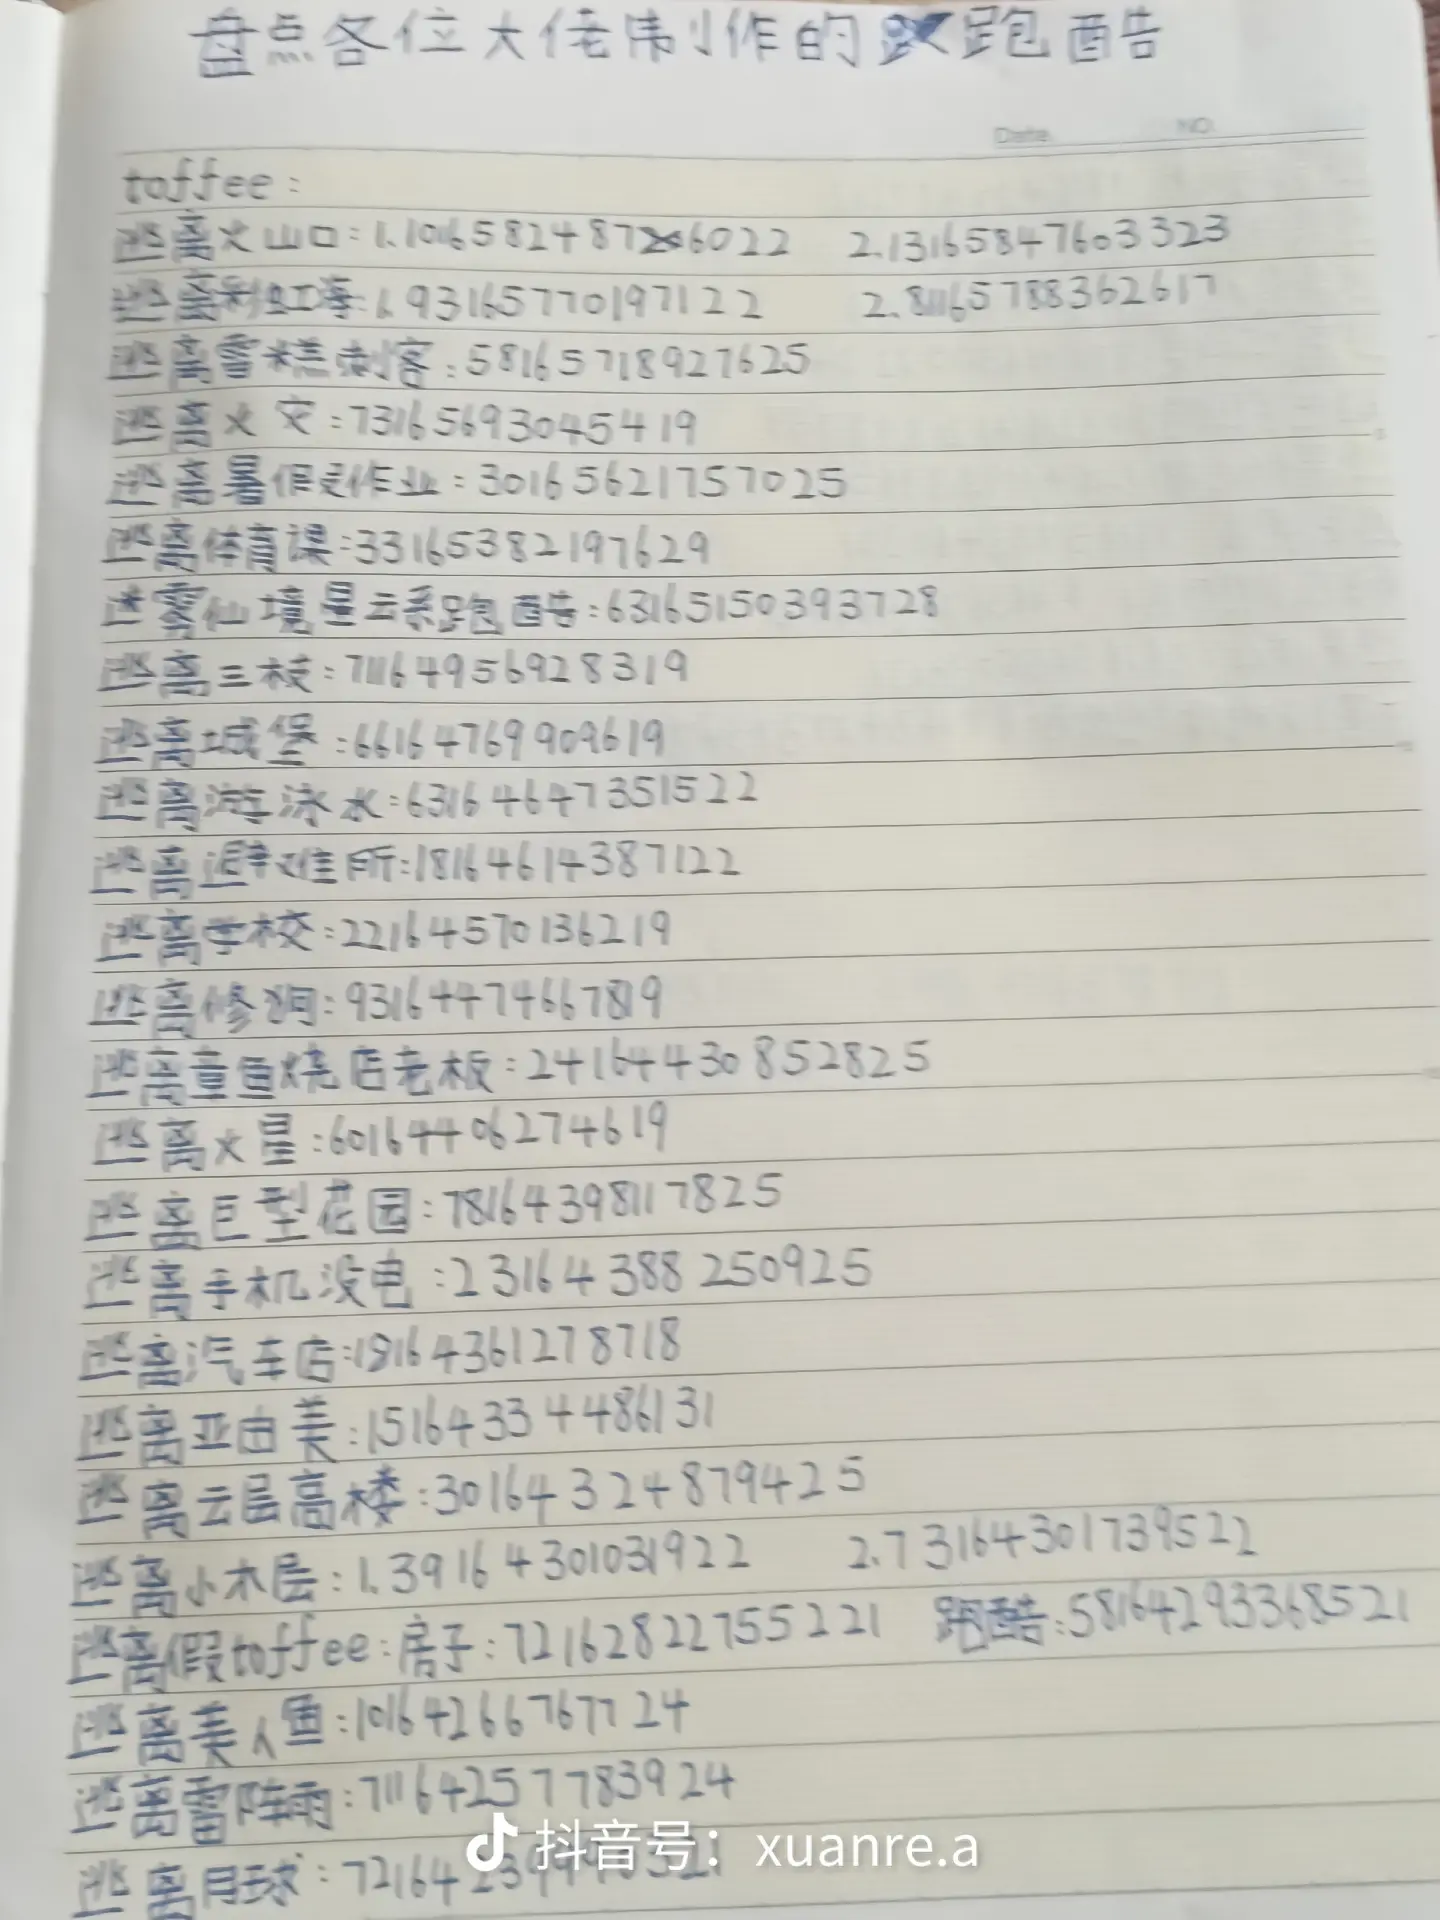 盘点各位大佬制作的跑酷
Date NO
toffee:
逃离火山口:1.1016582487 6022 2.13165847603323
逃离 海:1.93165770197122 2.81165788362617
逃离雪糕刺客:58165718927625
逃离火灾:73165693045419
逃离暑假作业:30165621757025
逃离体育课:33165382197629
迷雾仙境星云系跑酷:63165150393728
逃离三枝:71164956928319
逃离城堡:66164769909619
逃离游泳水:63164647351522
逃离避难所:18164614387122
逃离学校:22164570136219
逃离修 :93164474667819
逃离章鱼烧店老板:24164430852825
逃离火星:60164406274619
逃离巨型花园:78164398117825
逃离手机没电:23164388250925
逃离汽车店:18164361278718
逃离亚由美:15164334486131
逃离云层高楼:30164324879425
逃离小木层:1.39164301031922 2.73164301739522
逃离假toffee:房子:72162822755221 跑酷:58164293368521
逃离美人鱼:10164266767724
逃离雷阵雨:71164257783924
逃离月球:721642399
抖音号:xuanre.a